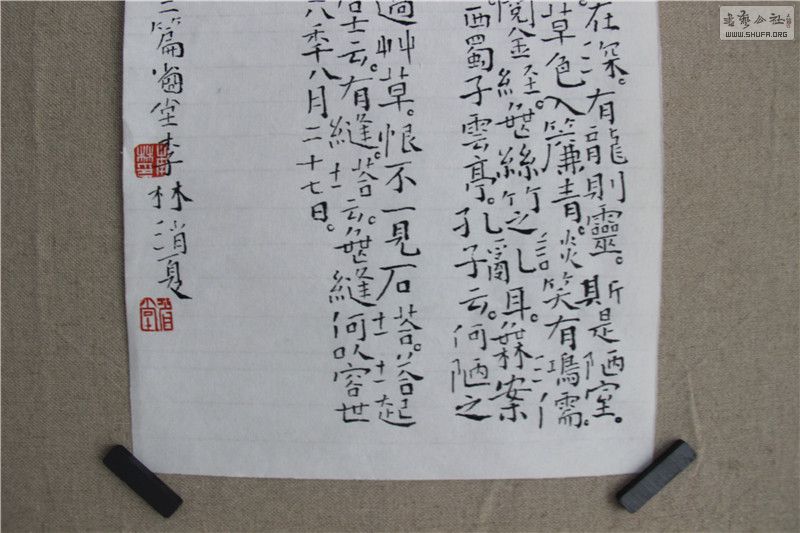 在深。有龍則靈。斯是陋室。
草色入簾青。談笑有鴻儒。
閱金經。無絲竹之亂耳。無案
西蜀子雲亭。孔子云。何陋之
過艸草。恨不一見石塔。塔起
居士云。有縫塔。塔云。無縫何以容世
八季八月二十七日。
三篇 堂李林消夏
WWW.SHUFA.ORG